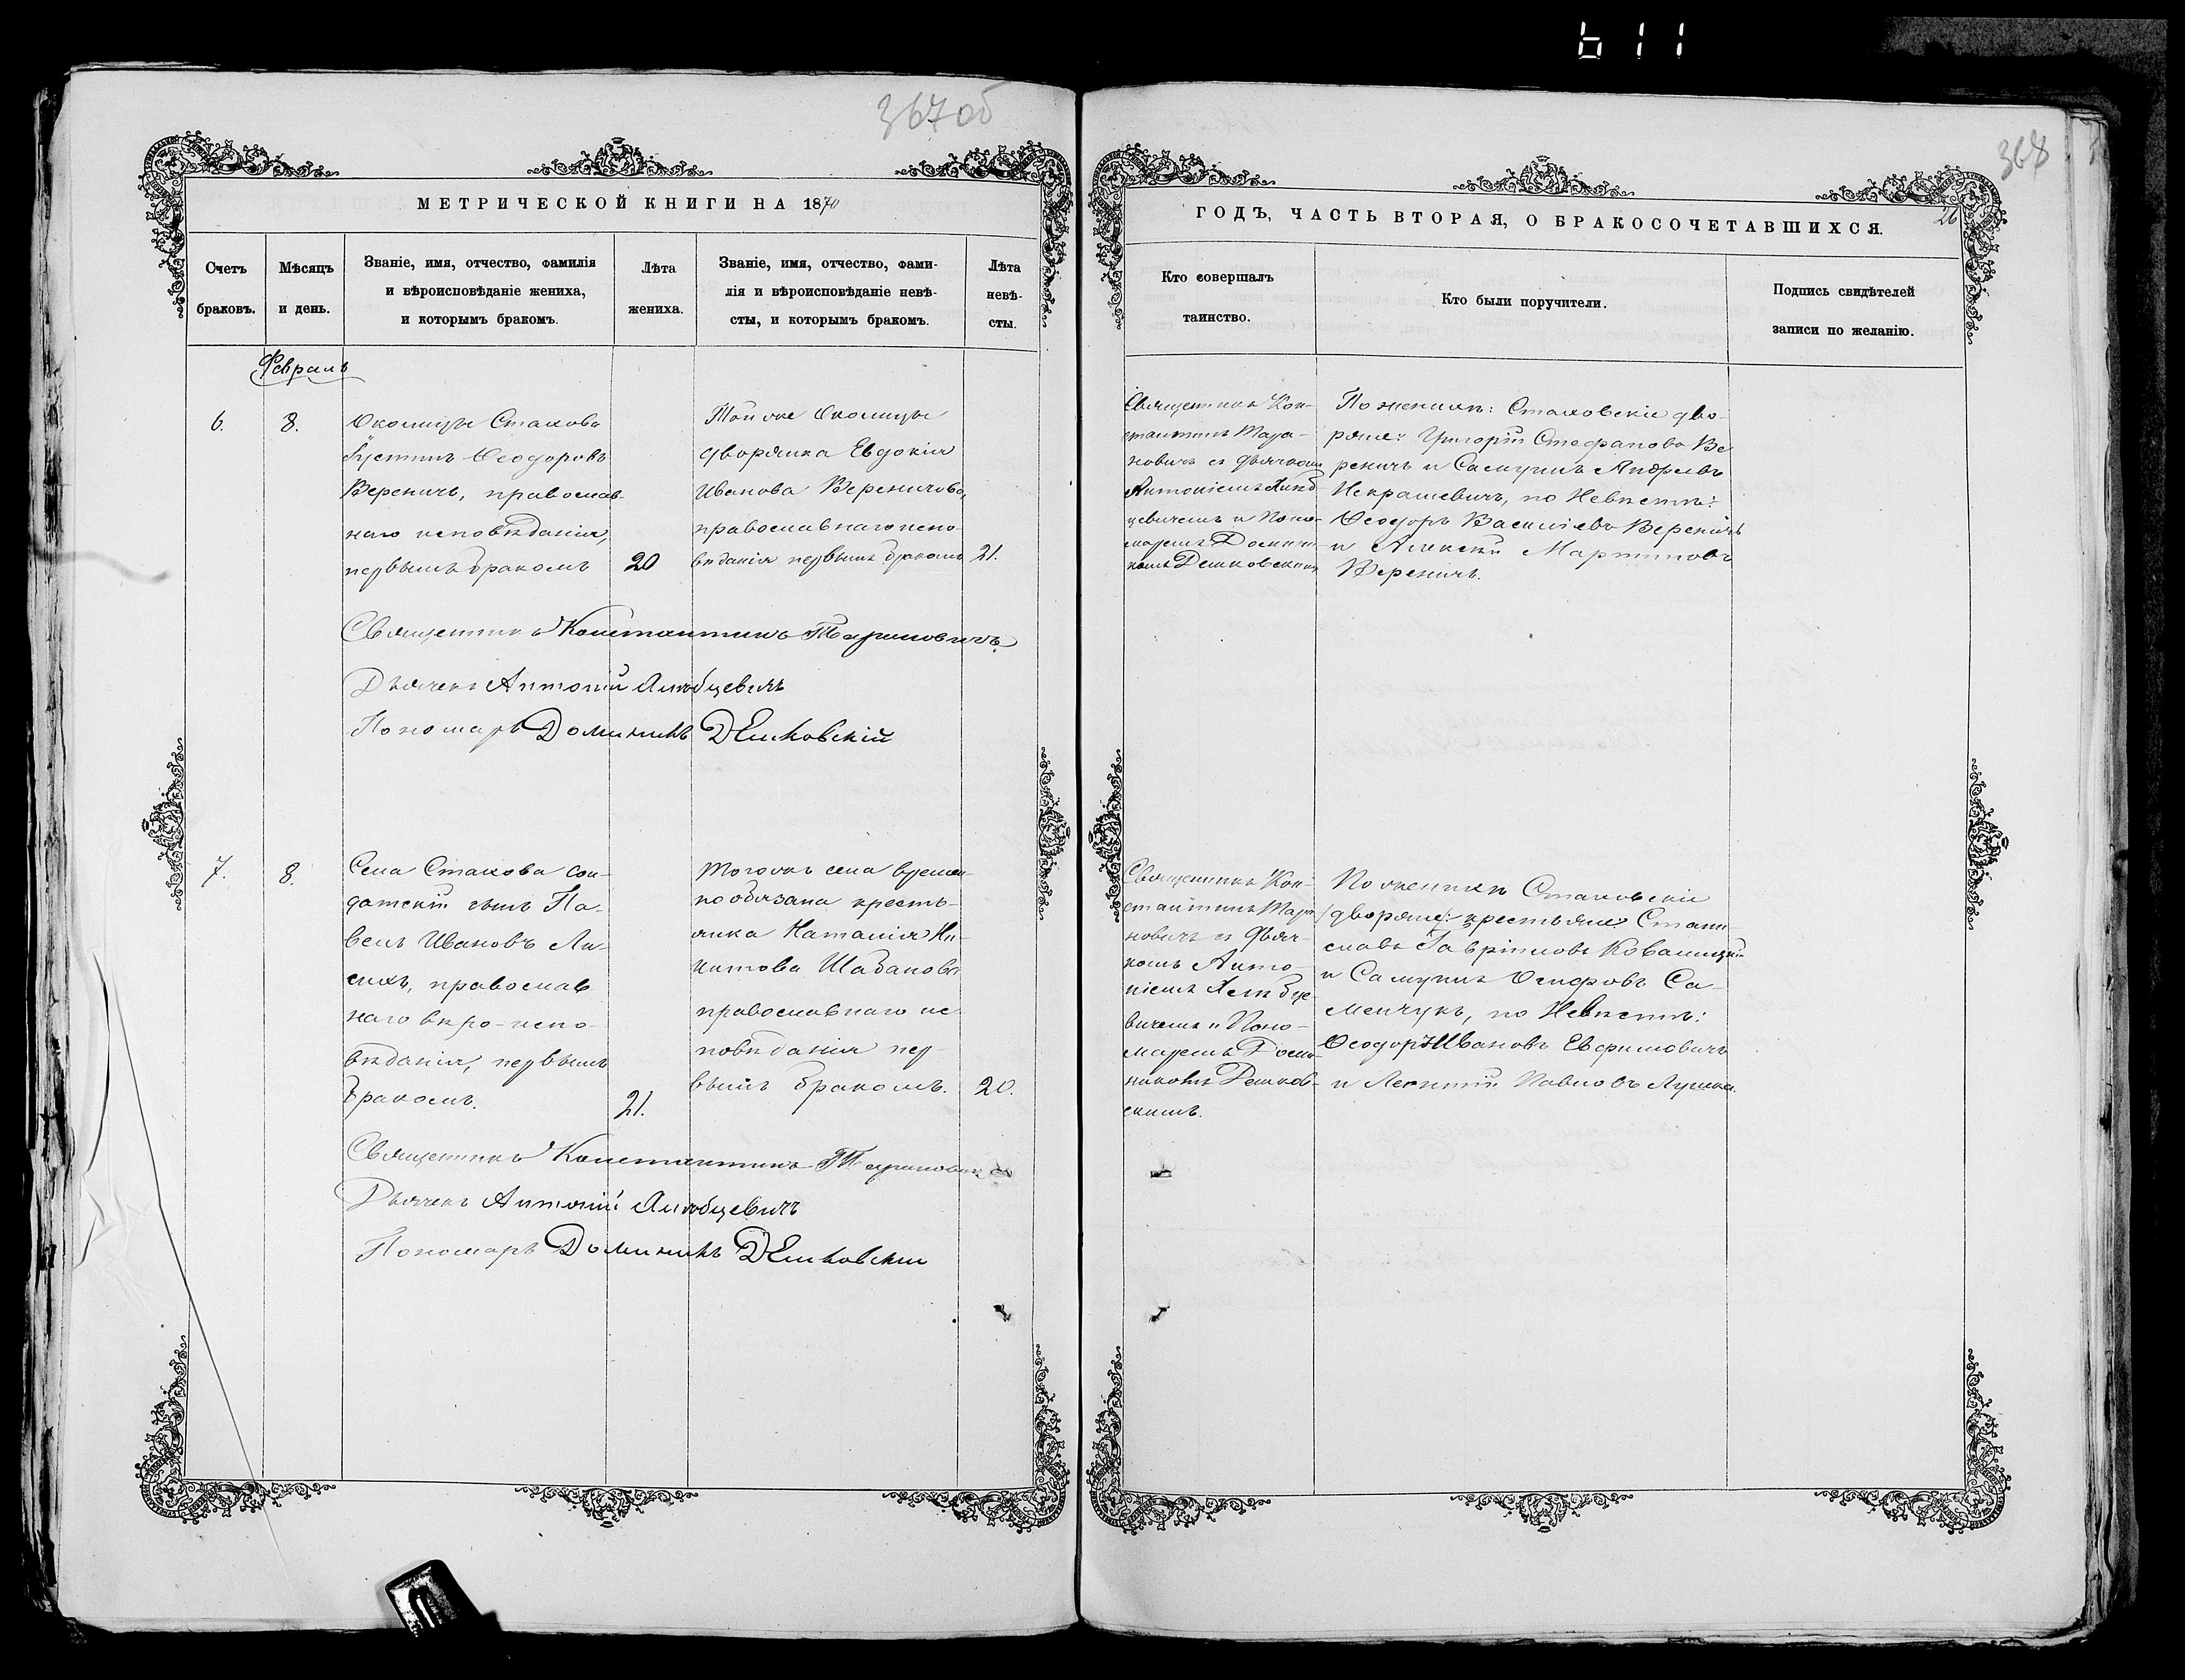 611
367об
МЕТРИЧЕСКОЙ КНИГИ НА 1870
Счетъ браковъ.
Мѣсяцъ и день.
Званіе, имя, отчество, фамилія
и вѣроисповѣданіе жениха,
и которымъ бракомъ.
Лѣта жениха.
Званіе, имя, отчество, фами-
лія и вѣроисповѣданіе невѣ-
сты, и которымъ бракомъ.
Лѣта
невѣ-
сты.
Февраль
6.
8.
Околицы Стахова
Іустинъ Ѳеодоровъ
Вереничъ, православ-
наго исповѣданія,
первымъ бракомъ
20
Той же Околицы
дворянка Евдокія
Иванова Вереничова,
православнаго испо-
вѣданія первымъ бракомъ
21.
Священникъ Константинъ Тарановичъ
Дьячекъ Антоній
Пономарь Доминикъ Дешковскій
7.
8.
Села Стахова сол-
датскій сынъ Па-
велъ Ивановъ Ли-
сихъ, православ
наго вѣро-испо-
вѣданія, первымъ
бракомъ.
21.
Тогоже села времен-
нообязана кресть-
янка Наталія Ни-
китова Шабанова
православнаго ис-
повѣданія пер-
вымъ бракомъ.
20.
Священникъ Константинъ Тарановичъ
Дьячекъ Антоній
Пономарь Доминикъ Дешковскій
368
26
ГОДЪ, ЧАСТЬ ВТОРАЯ, О БРАКОСОЧЕТАВШИХСЯ.
Кто совершалъ
таинство.
Кто были поручители.
Подпись свидѣтелей
записи по желанію.
Священникъ Кон-
стантинъ Тара-
новичъ съ дьячкомъ
Антоніемъ
цевичемъ и Поно-
маремъ Домини
комъ Дешковскимъ
По женихѣ: Стаховскіе дво-
ряне: Григорій Стефановъ Ве
реничъ и Самуилъ Андреевъ
Некрашевичъ, по Невѣстѣ:
Ѳеодоръ Василіевъ Вереничъ
и Алексѣй Мартиновъ
Вереничъ.
Священникъ Кон-
стантинъ Тара
новичъ съ Дьяч-
комъ Анто
ніемъ
вичемъ и Поно-
маремъ Доми-
никомъ Дешков-
скимъ.
По женихѣ Стаховскіе
/дворяне/: крестьяне: Стани-
славъ Гавріиловъ Ковалицкій
и Самуилъ Осифовъ Са-
менчукъ, по Невѣстѣ:
Ѳеодоръ Ивановъ Евфимовичъ
и Леонтій Павловъ Лушка.